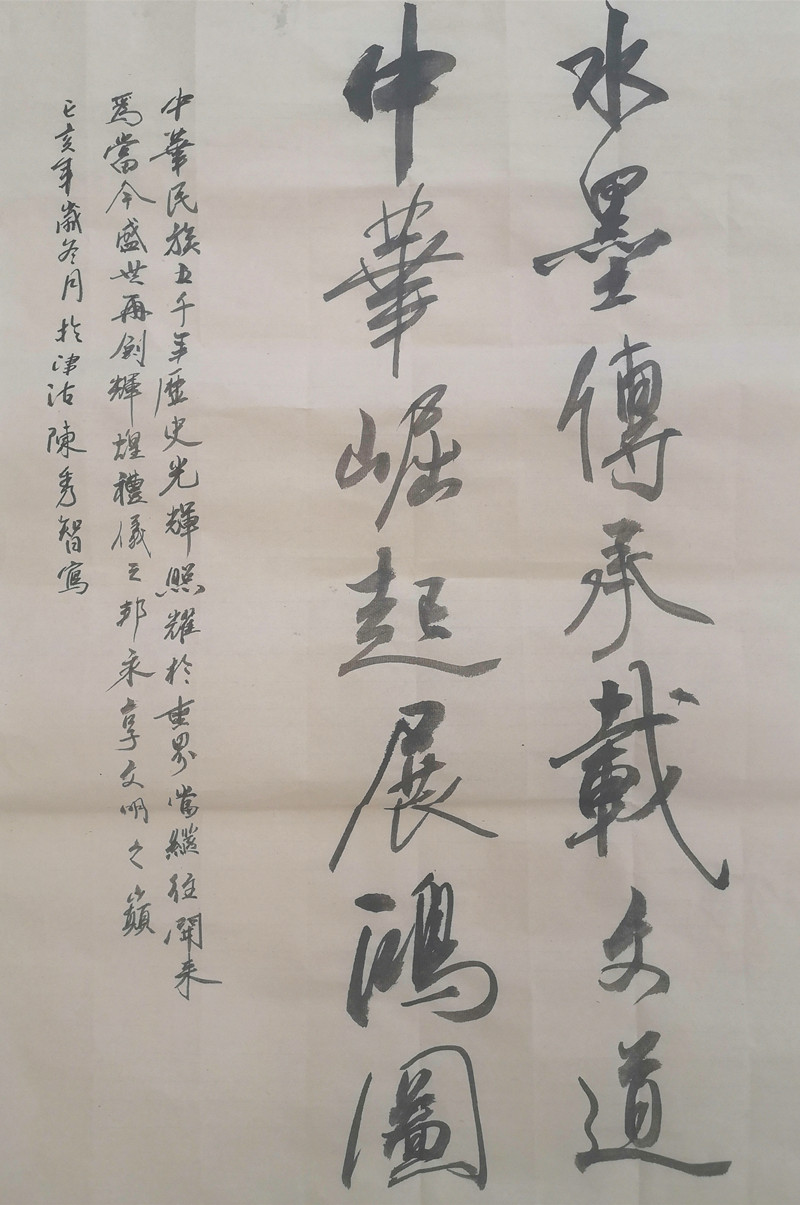 水墨傳承載文道
中華崛起展鴻圖
中華民族五千年歷史光輝照耀於世界當繼往開来
為當今盛世再創輝煌禮儀之邦永享文明之巔
己亥年歲冬月於津沽陳秀智寫